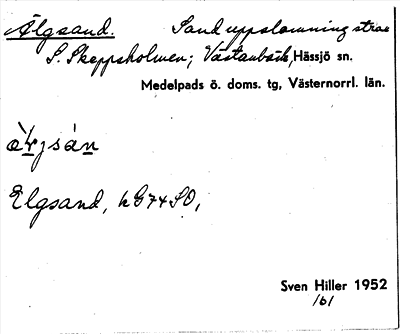 Älgsand. Sanduppslamning strax
S. Skeppsholmen; Västanbäck, Hässjö sn.
Medelpads ö. doms. tg, Västernorrl. län.
Elgsand, hG74SO,
Sven Hiller 1952
/b/